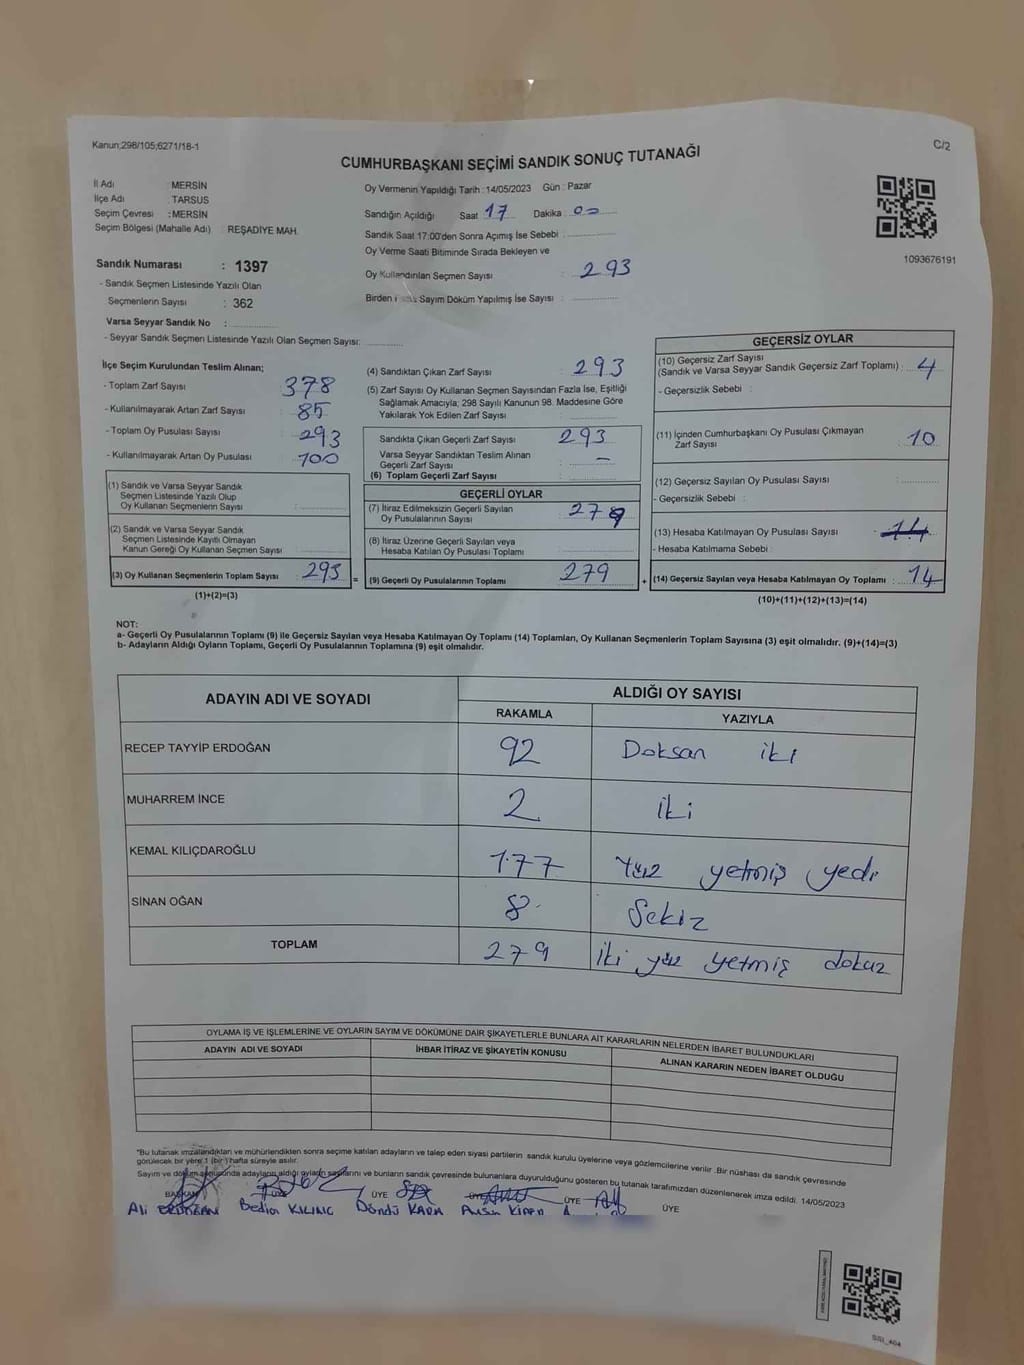 Kanun;298/105;6271/18-1
C/2
CUMHURBAŞKANI SEÇİMİ SANDIK SONUÇ TUTANAĞI
İl Adı : MERSİN
İlçe Adı : TARSUS
Seçim Çevresi : MERSİN
Seçim Bölgesi (Mahalle Adı) : REŞADİYE MAH.
Oy Vermenin Yapıldığı Tarih : 14/05/2023 Gün : Pazar
Sandığın Açıldığı Saat 17 Dakika : 00
Sandık Saat 17:00'den Sonra Açımış İse Sebebi :
Oy Verme Saati Bitiminde Sırada Bekleyen ve
Oy Kullandırılan Seçmen Sayısı : 293
Birden Sayım Döküm Yapılmış İse Sayısı :
1093676191
Sandık Numarası : 1397
- Sandık Seçmen Listesinde Yazılı Olan
Seçmenlerin Sayısı : 362
Varsa Seyyar Sandık No :
- Seyyar Sandık Seçmen Listesinde Yazılı Olan Seçmen Sayısı:
İlçe Seçim Kurulundan Teslim Alınan;
- Toplam Zarf Sayısı 378
- Kullanılmayarak Artan Zarf Sayısı : 85
- Toplam Oy Pusulası Sayısı : 293
- Kullanılmayarak Artan Oy Pusulası : 100
(1) Sandık ve Varsa Seyyar Sandık
Seçmen Listesinde Yazılı Olup
Oy Kullanan Seçmenlerin Sayısı :
(2) Sandık ve Varsa Seyyar Sandık
Seçmen Listesinde Kayıtlı Olmayan
Kanun Gereği Oy Kullanan Seçmen Sayısı
(3) Oy Kullanan Seçmenlerin Toplam Sayısı : 293 =
(1)+(2)=(3)
(4) Sandıktan Çıkan Zarf Sayısı : 293
(5) Zarf Sayısı Oy Kullanan Seçmen Sayısından Fazla İse, Eşitliği
Sağlamak Amacıyla; 298 Sayılı Kanunun 98. Maddesine Göre
Yakılarak Yok Edilen Zarf Sayısı :
Sandıkta Çıkan Geçerli Zarf Sayısı : 293
Varsa Seyyar Sandıktan Teslim Alınan
Geçerli Zarf Sayısı : -
(6) Toplam Geçerli Zarf Sayısı :
GEÇERLİ OYLAR
(7) İtiraz Edilmeksizin Geçerli Sayılan
Oy Pusulalarının Sayısı : 279
(8) İtiraz Üzerine Geçerli Sayılan veya
Hesaba Katılan Oy Pusulası Toplamı :
(9) Geçerli Oy Pusulalarının Toplamı : 279 +
GEÇERSİZ OYLAR
(10) Geçersiz Zarf Sayısı
(Sandık ve Varsa Seyyar Sandık Geçersiz Zarf Toplamı) : 4
- Geçersizlik Sebebi :
(11) İçinden Cumhurbaşkanı Oy Pusulası Çıkmayan
Zarf Sayısı : 10
(12) Geçersiz Sayılan Oy Pusulası Sayısı :
- Geçersizlik Sebebi :
(13) Hesaba Katılmayan Oy Pusulası Sayısı : 14
- Hesaba Katılmama Sebebi :
(14) Geçersiz Sayılan veya Hesaba Katılmayan Oy Toplamı : 14
(10)+(11)+(12)+(13)=(14)
NOT:
a- Geçerli Oy Pusulalarının Toplamı (9) ile Geçersiz Sayılan veya Hesaba Katılmayan Oy Toplamı (14) Toplamları, Oy Kullanan Seçmenlerin Toplam Sayısına (3) eşit olmalıdır. (9)+(14)=(3)
b- Adayların Aldığı Oyların Toplamı, Geçerli Oy Pusulalarının Toplamına (9) eşit olmalıdır.
ADAYIN ADI VE SOYADI ALDIĞI OY SAYISI
RAKAMLA YAZIYLA
RECEP TAYYİP ERDOĞAN 92 Doksan iki
MUHARREM İNCE 2 İki
KEMAL KILIÇDAROĞLU 177 Yüz yetmiş yedi
SİNAN OĞAN 8 Sekiz
TOPLAM 279 İki yüz yetmiş dokuz
OYLAMA İŞ VE İŞLEMLERİNE VE OYLARIN SAYIM VE DÖKÜMÜNE DAİR ŞİKAYETLERLE BUNLARA AİT KARARLARIN NELERDEN İBARET BULUNDUKLARI
ADAYIN ADI VE SOYADI İHBAR İTİRAZ VE ŞİKAYETİN KONUSU ALINAN KARARIN NEDEN İBARET OLDUĞU
"Bu tutanak imzalandıktan ve mühürlendikten sonra seçime katılan adayların ve talep eden siyasi partilerin sandık kurulu üyelerine veya gözlemcilerine verilir .Bir nüshası da sandık çevresinde
görülecek bir yere 1 (bir) hafta süreyle asılır.
Sayım ve döküm sonucunda adayların aldığı oyların sayılarını ve bunların sandık çevresinde bulunanlara duyurulduğunu gösteren bu tutanak tarafımızdan düzenlenerek imza edildi. 14/05/2023
BAŞKAN ÜYE ÜYE ÜYE ÜYE ÜYE
Ali Bedia KILINÇ Döndü KARA
SSI_404